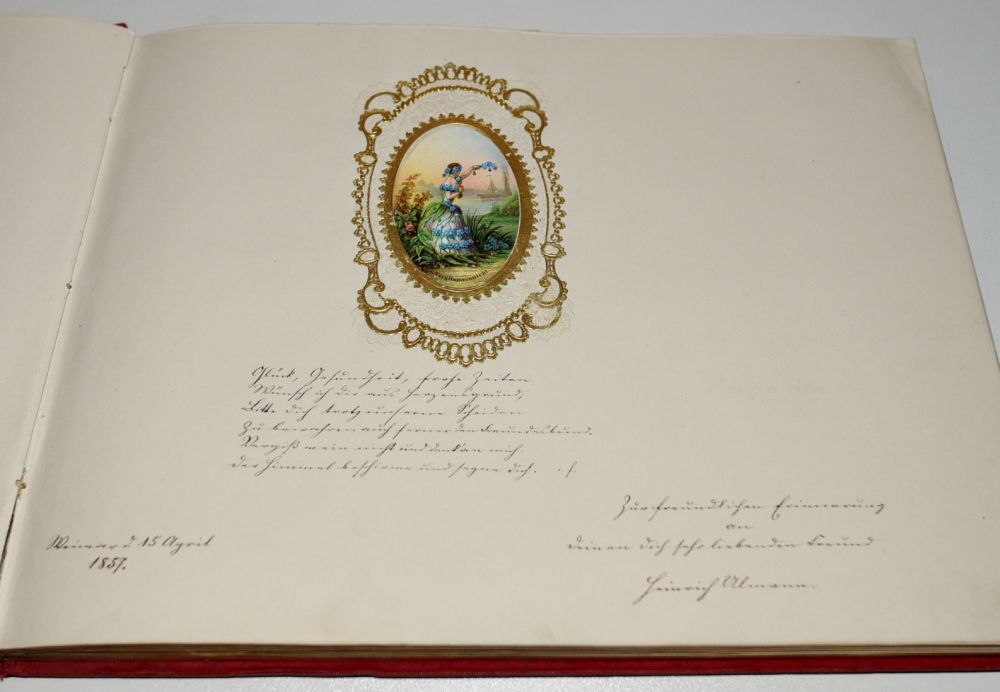 Vergißmeinnicht
Glück, Gesundheit, frohe Zeiten
Wünsch ich dir aus Herzensgrund,
Bitte dich trotz unserm Scheiden
Zu bewahren auch ferner den Freundesbund.
Vergiß mein nicht und denk an mich.
Der Himmel beschirme und segne dich.
Zur freundlichen Erinnerung
an
deinen dich sehr liebenden Freund
Heinrich Ulmann.
Weimar d 15 April
1857.